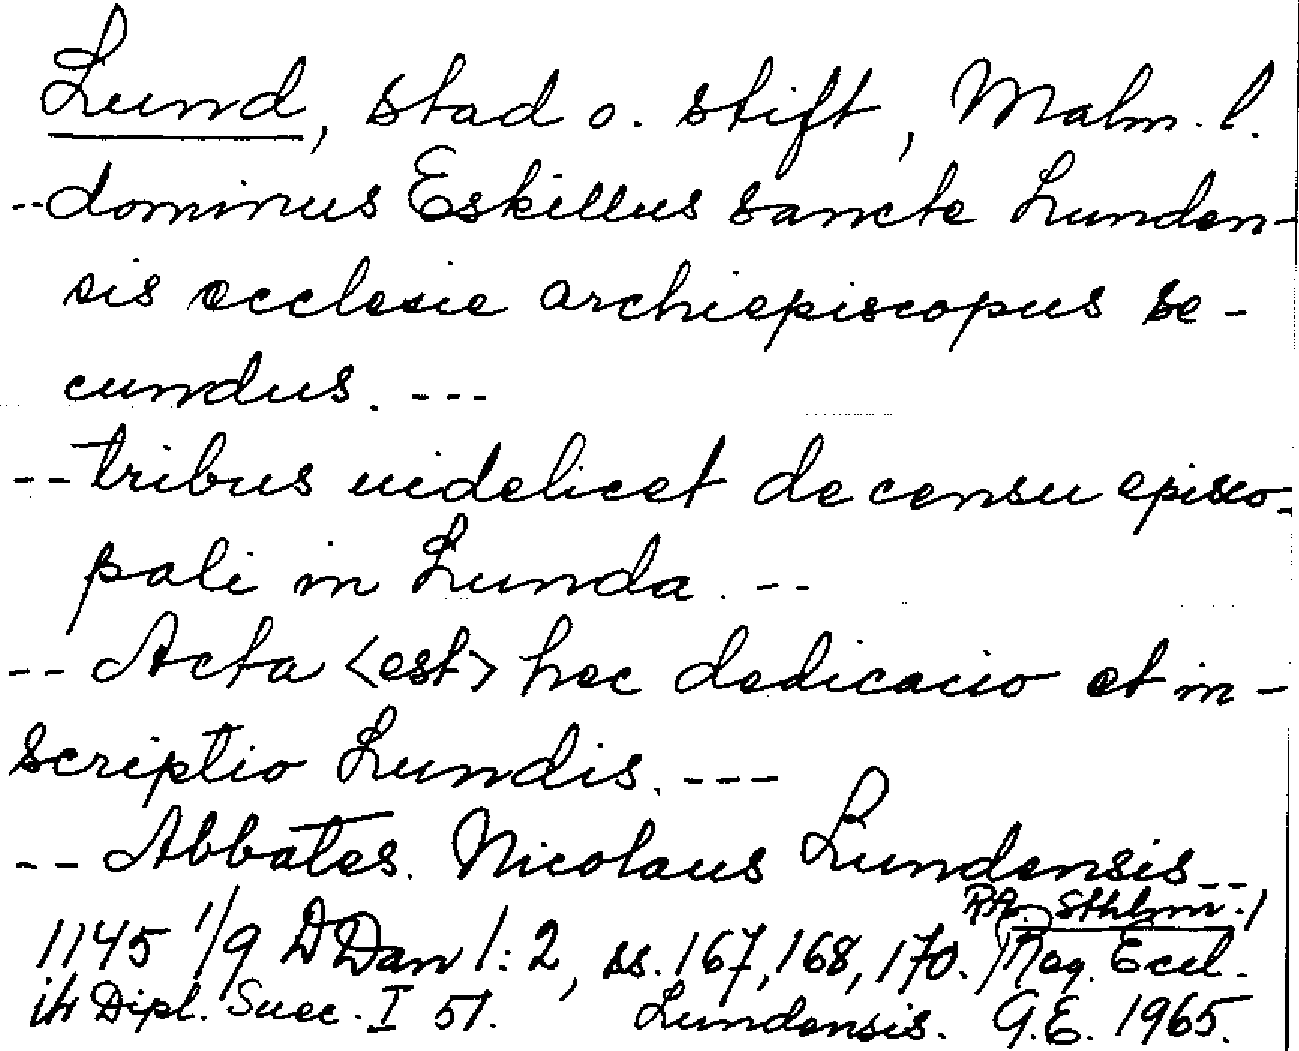 Lund, stad o. stift, Malm. l.
--dominus Eskillus sancte Lunden-
sis ecclesie archiepiscopus se-
cundus. ---
--tribus uidelicet de censu episco-
pali in Lunda. --
-- Acta <est> hec dedicacio et in-
scriptio Lundis. ---
-- Abbates. Nicolaus Lundensis --
RA. Sthlm.
1145 1/9 D Dan 1:2, ss. 167, 168, 170. Reg. Eccl.
Dipl. Suec. I 51. Lundensis. G.E. 1965.